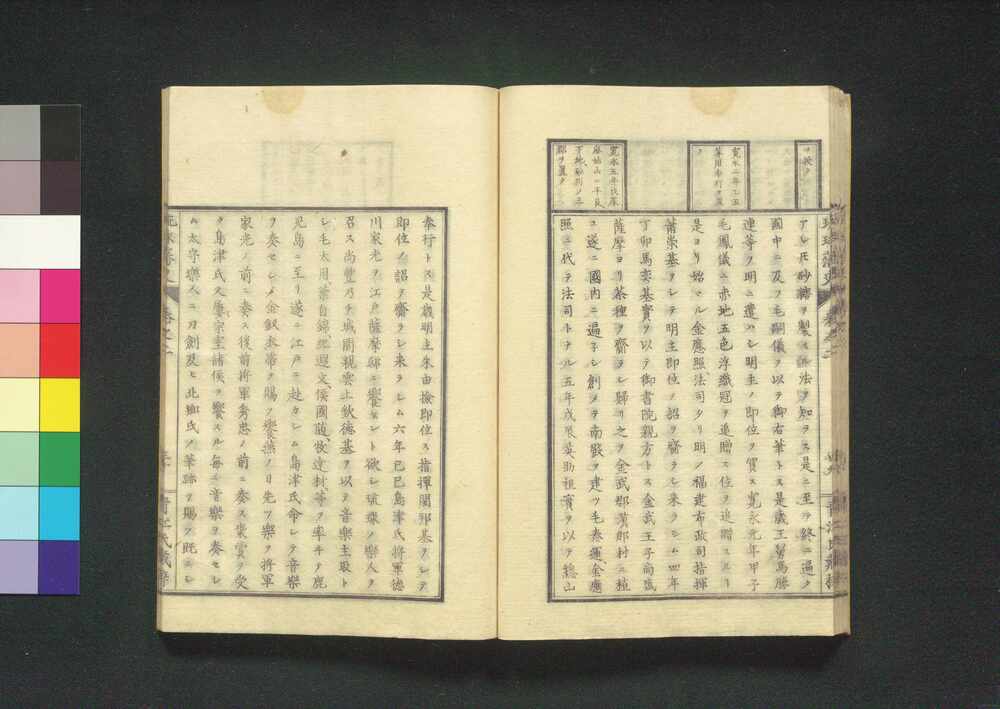 アレ𪜈砂糖ヲ製スル法ヲ知ラス是ニ至テ終ニ遍ク
國中ニ及フ毛嗣儀ヲ以テ御右筆トス是歳王舅馬勝
連等ヲ明ニ遣ハシ明主ノ即位ヲ賀ス寛永元年甲子
毛鳳儀ニ赤地五色浮織冠ヲ追贈ス位ヲ追贈スル
是ヨリ始マル金應照法司タリ明ノ福建布政司指揮
蕭崇基ヲシテ明主即位ノ詔ヲ齎ラシ来ラシム四年
丁卯馬委基實ヲ以テ御書院親方トス金武王子尚盛
薩摩ヨリ茶種ヲ齎ラシ歸リ之ヲ金武郡漢那村ニ植
ユ遂ニ國内ニ遍子シ創メテ南殿ヲ建ツ毛泰運金應
照ニ代テ法司トナル五年戊辰英助祖濱ヲ以テ總山
寛永二年乙丑
筆用奉行ヲ置
ク
寛永五年戊辰
郡ヲ置ク
琉球藩史
奉行トス是歳明主朱由檢即位ス指揮閩邦基ヲシテ
即位ノ詔ヲ齎ラシ来ラシム六年己巳島津氏將軍徳
川家光ヲ江戸薩摩邸ニ饗セント欲シ琉球ノ樂人ヲ
召ス尚豊乃チ城間親雲上欽德基ヲ以テ音樂主取ト
シ毛太用
等ヲ率キテ鹿
児島ニ至リ遂ニ江戸ニ赴カシム島津氏命シテ音樂
ヲ奏セシメ金釵衣帯ヲ賜フ饗燕ノ日先ツ樂ヲ將軍
家光ノ前ニ奏ス後前將軍秀忠ノ前ニ奏ス裳賞ヲ受
ク島津氏又屡宗室諸侯ヲ饗スル毎ニ音樂ヲ奏セシ
ム太守樂人ニ刀劍及ヒ北郷氏ノ筆跡ヲ賜フ既ニシ